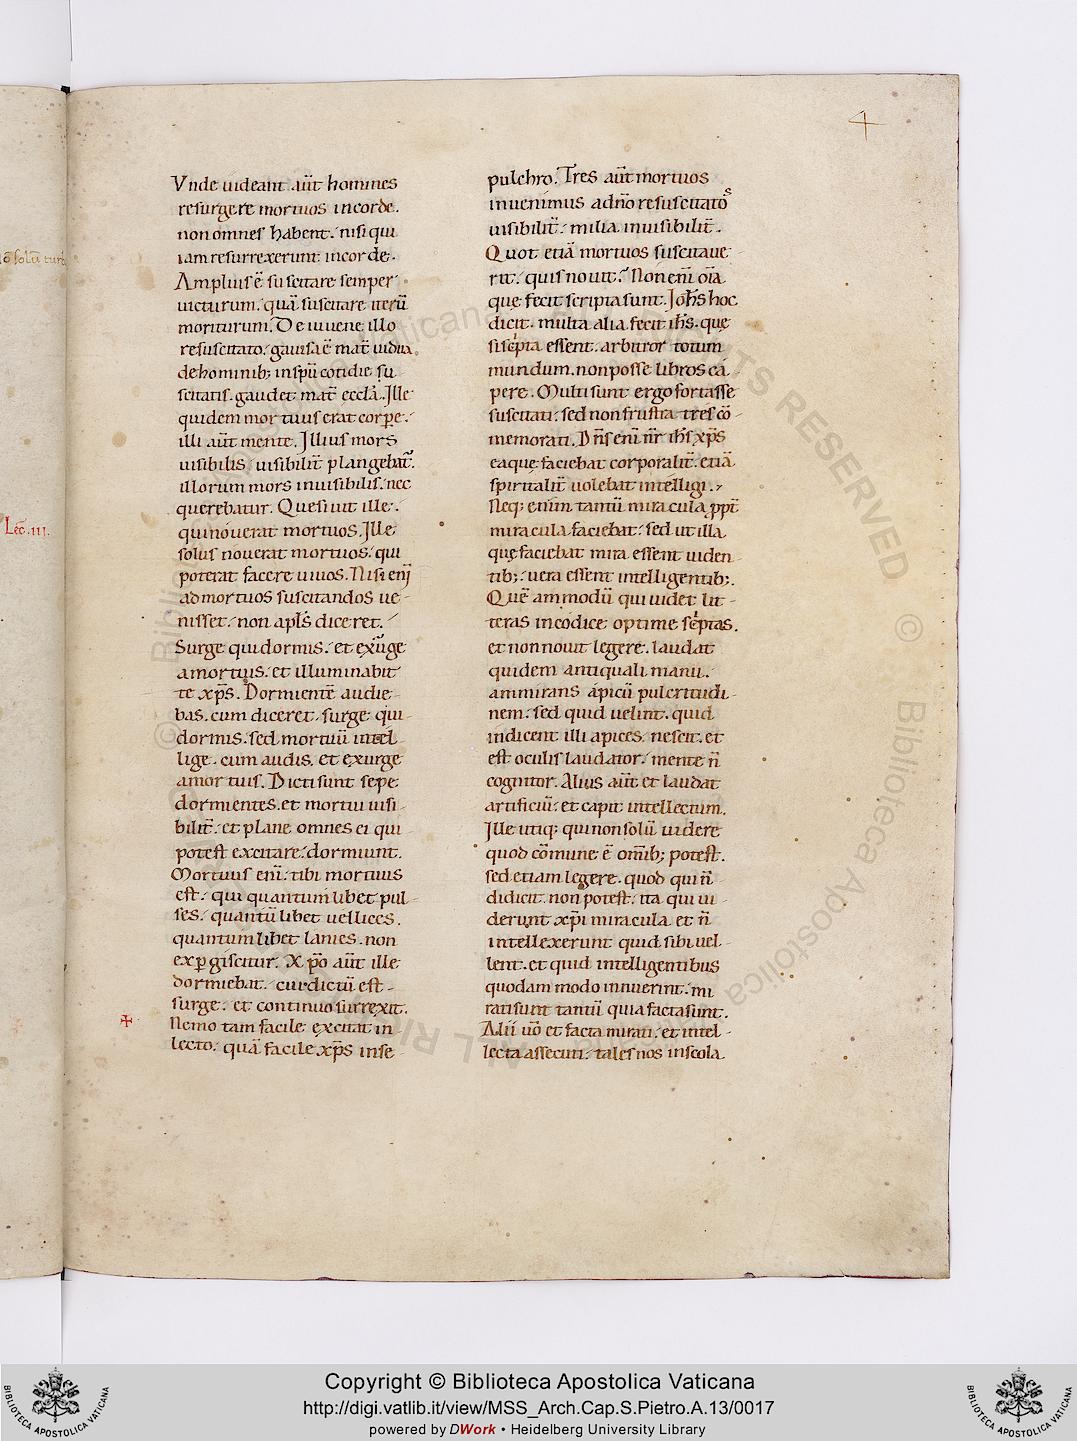 4
Vnde uideant aut̄ homines
resurgere mortuos in corde.
non omnes habent. nisi qui
iam resurrexerunt in corde.
Amplius ē suscitare semper
uicturum. quā suscitare iterū
moriturum. De iuuene illo
resuscitato. gauisa ē mat̄ uidua.
de hominib; in sp̄u cotidie su
scitatis. gaudet mat̄ eccl̄a. Ille
quidem mortuus erat corpe.
illi aut̄ mente. Illius mors
uisibilis. uisibilit̄ plangebat̄.
illorum mors inuisibilis. nec
querebatur. Quesiuit ille.
qui nouerat mortuos. Ille
solus nouerat mortuos. qui
poterat facere uiuos. Nisi enī
ad mortuos suscitandos ue-
nisset. non apl̄s diceret.
Surge qui dormis. et exurge
a mortuis. et illuminabit
te xp̄s. Dormientē audie-
bas. cum diceret. surge qui
dormis. sed mortuū intel
lige. cum audis. et exurge
a mortuis. Dicti sunt sepe
dormientes. et mortui uisi-
bilit̄. et plane omnes ei qui
potest excitare. dormiunt.
Mortuus enī. tibi mortuus
est. qui quantum libet pul-
ses. quantū libet uellices.
quantum libet lanies. non
expgiscitur. Xp̄o aut̄ ille
dormiebat. cui dictū est-
surge. et continuo surrexit.
Nemo tam facile excitat in
lecto. quā facile xp̄s in se-
pulchro. Tres aut̄ mortuos
inuenimus a dn̄o resuscitatos
uisibilit̄. milia inuisibilit̄.
Quot etiā mortuos suscitaue-
rit. quis nouit? Non enī om̄a
quę fecit scripta sunt. Ioh̄s hoc
dicit. multa alia fecit ih̄s. quę
si scripta essent. arbitror totum
mundum. non posse libros ca-
pere. Multi sunt ergo fortasse
suscitati. sed non frustra tres cō-
memorati. Dn̄s enī nr̄ ih̄s xp̄s
ea quę faciebat corporalit̄. etiā
spiritalit̄ uolebat intelligi.
Neq; enim tantū miracula ppt̄
miracula faciebat. sed ut illa
quę faciebat mira essent uiden-
tib;. uera essent intelligentib;.
Quēammodū qui uidet lit-
teras in codice optime scriptas.
et non nouit legere. laudat
quidem antiquali manū.
ammirans apicū pulcritudi-
nem. sed quid uelint. quid
indicent illi apices. nescit. et
est oculis laudator. mente n̄
cognitor. Alius aut̄ et laudat
artificiū. et capit intellectum.
Ille utiq; qui non solū uidere
quod cōmune ē om̄ib; potest.
sed etiam legere. quod qui n̄
didicit. non potest. ita qui ui-
derunt xp̄i miracula et n̄
intellexerunt quid sibi uel-
lent. et quid intelligentibus
quodam modo innuerint. mi
rati sunt tantū quia facta sunt.
Alii uō et facta mirati. et intel-
lecta assecuti. tales nos in scola
Lec̄. III.
Copyright © Biblioteca Apostolica Vaticana
http://digi.vatlib.it/view/MSS_Arch.Cap.S.Pietro.A.13/0017
powered by DWork • Heidelberg University Library
BIBLIOTECA APOSTOLICA VATICANA
BIBLIOTECA APOSTOLICA VATICANA